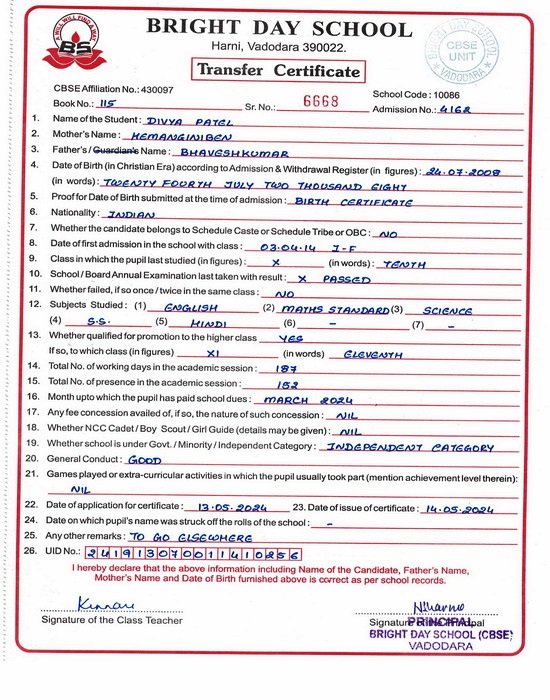 A WILL WILL FIND A WAY
BS
BRIGHT DAY SCHOOL
Harni, Vadodara 390022.
Transfer Certificate
BRIGHT DAY SCHOOL
CBSE
UNIT
VADODARA
CBSE Affiliation No.: 430097 School Code : 10086
Book No.: 115 Sr. No.: 6668 Admission No.: 4162
1. Name of the Student : DIVYA PATEL
2. Mother's Name : HEMANGINIBEN
3. Father's / Guardian's Name : BHAVESHKUMAR
4. Date of Birth (in Christian Era) according to Admission & Withdrawal Register (in figures) : 24.07.2008
(in words) : TWENTY FOURTH JULY TWO THOUSAND EIGHT
5. Proof for Date of Birth submitted at the time of admission : BIRTH CERTIFICATE
6. Nationality : INDIAN
7. Whether the candidate belongs to Schedule Caste or Schedule Tribe or OBC : NO
8. Date of first admission in the school with class : 03.04.14 I-F
9. Class in which the pupil last studied (in figures) : X (in words) : TENTH
10. School / Board Annual Examination last taken with result : X PASSED
11. Whether failed, if so once / twice in the same class : NO
12. Subjects Studied : (1) ENGLISH (2) MATHS STANDARD (3) SCIENCE
(4) S.S. (5) HINDI (6) - (7) -
13. Whether qualified for promotion to the higher class YES
If so, to which class (in figures) XI (in words) ELEVENTH
14. Total No. of working days in the academic session : 187
15. Total No. of presence in the academic session : 152
16. Month upto which the pupil has paid school dues : MARCH 2024
17. Any fee concession availed of, if so, the nature of such concession : NIL
18. Whether NCC Cadet / Boy Scout / Girl Guide (details may be given) : NIL
19. Whether school is under Govt. / Minority / Independent Category : INDEPENDENT CATEGORY
20. General Conduct : GOOD
21. Games played or extra-curricular activities in which the pupil usually took part (mention achievement level therein) :
NIL
22. Date of application for certificate : 13.05.2024 23. Date of issue of certificate : 14.05.2024
24. Date on which pupil's name was struck off the rolls of the school : -
25. Any other remarks : TO GO ELSEWHERE
26. UID No.: 241913070011410256
I hereby declare that the above information including Name of the Candidate, Father's Name,
Mother's Name and Date of Birth furnished above is correct as per school records.
Signature of the Class Teacher Signature of the Principal
PRINCIPAL
BRIGHT DAY SCHOOL (CBSE)
VADODARA